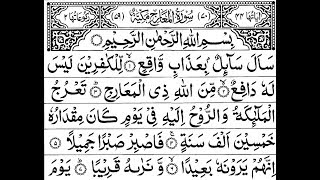 اٰیَاتُهَا ۴۴ (۷۰) سُوْرَةُ الْمَعَارِجِ مَكِّيَّةٌ (۷۹) رُكُوْعَاتُهَا ۲
بِسْمِ اللّٰهِ الرَّحْمٰنِ الرَّحِيْمِ
سَاَلَ سَآئِلٌۢ بِعَذَابٍ وَّاقِعٍ ۱ لِّلْكٰفِرِيْنَ لَيْسَ
لَهٗ دَافِعٌ ۲ مِّنَ اللّٰهِ ذِي الْمَعَارِجِ ۳ تَعْرُجُ
الْمَلٰٓئِكَةُ وَالرُّوْحُ اِلَيْهِ فِيْ يَوْمٍ كَانَ مِقْدَارُهٗ
خَمْسِيْنَ اَلْفَ سَنَةٍ ۴ فَاصْبِرْ صَبْرًا جَمِيْلًا ۵
اِنَّهُمْ يَرَوْنَهٗ بَعِيْدًا ۶ وَّنَرٰىهُ قَرِيْبًا ۷ يَوْمَ